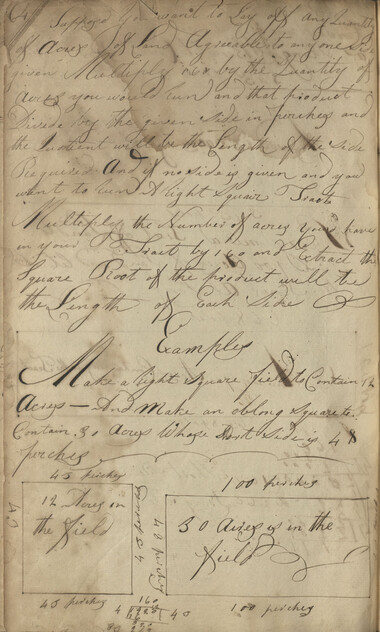 Suppose you want to Lay off any Quantity
of Acres of Land Agreeable to any one side
given Multiply 160 by the Quantity of
Acres you would run and that product
Divide by the given Side in perches and
the Quotient will be the Length of the Side
Required And if no side is given and you
want to run A right Squair Tract
Multiply the Number of acres you have
in your Tract by 160 and Extract the
Square Root of the product will be
the Length of Each Side
Examples
Make a right square field to Contain 12
Acres — And Make an oblong Square to
Contain 30 Acres Whose Side is 48
perches
43 perches
100 perches
12 Acres in
the field
43 perches
48 perches
30 Acres is in the
field
43
43 perches
100 perches
160